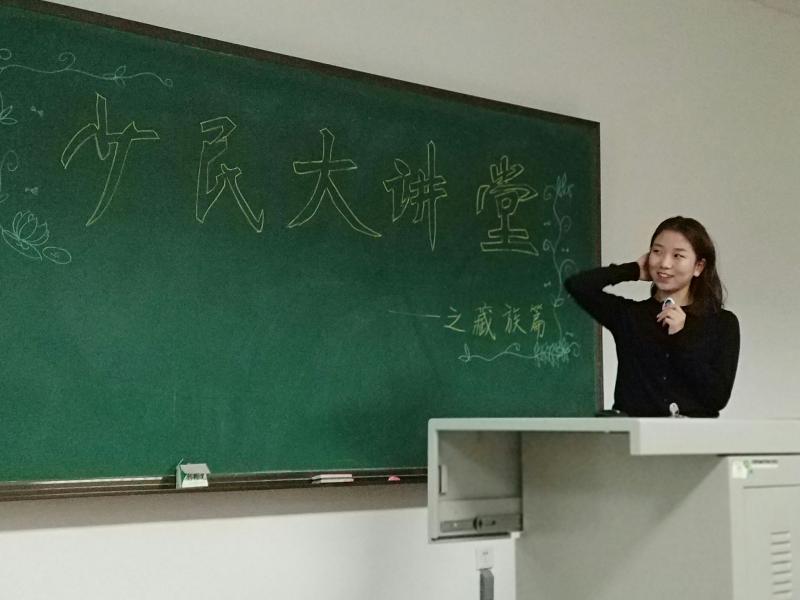 少民大讲堂
——之藏族篇